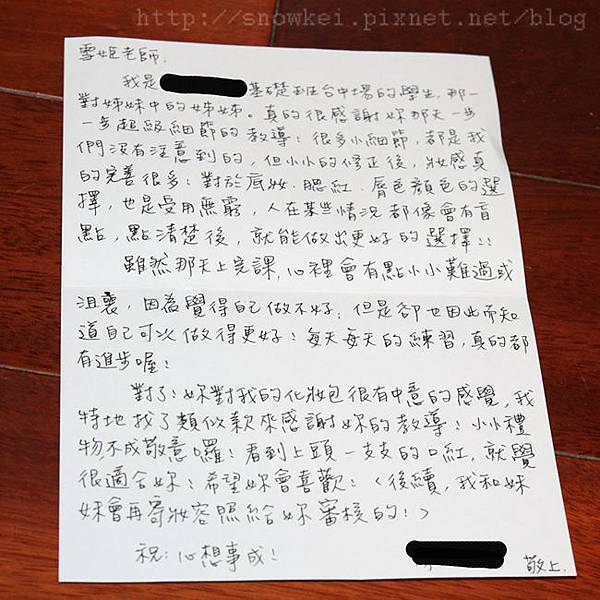 http://snowkei.pixnet.net/blog
雪姫老師.
我是基礎班台中場的學生,那一
對姊妹中的妹妹。真的很感謝妳那天一步
一步超級細節的教導!很多小細節,都是我
們沒有注意到的,但小小的修正後,妝感真
的完善很多!對於底妝.腮紅.唇色顏色的選
擇,也是受用無窮,人在某些情況都像會有盲
點,點清楚後,就能做出更好的選擇!!
雖然那天上完課,心裡會有點小小難過或
沮喪,因為覺得自己做不好;但是卻也因此而知
道自己可以做得更好!每天每天的練習,真的都
有進步喔!
對了!妳對我的化妝包很有中意的感覺,我
特地找了類似款來感謝妳的教導!小小禮
物不成敬意囉!看到上頭一支支的口紅,就覺
很適合妳!希望妳會喜歡!(後續,我和妹
妹會再寄妝容照給妳審核的!)
祝:心想事成!
敬上.